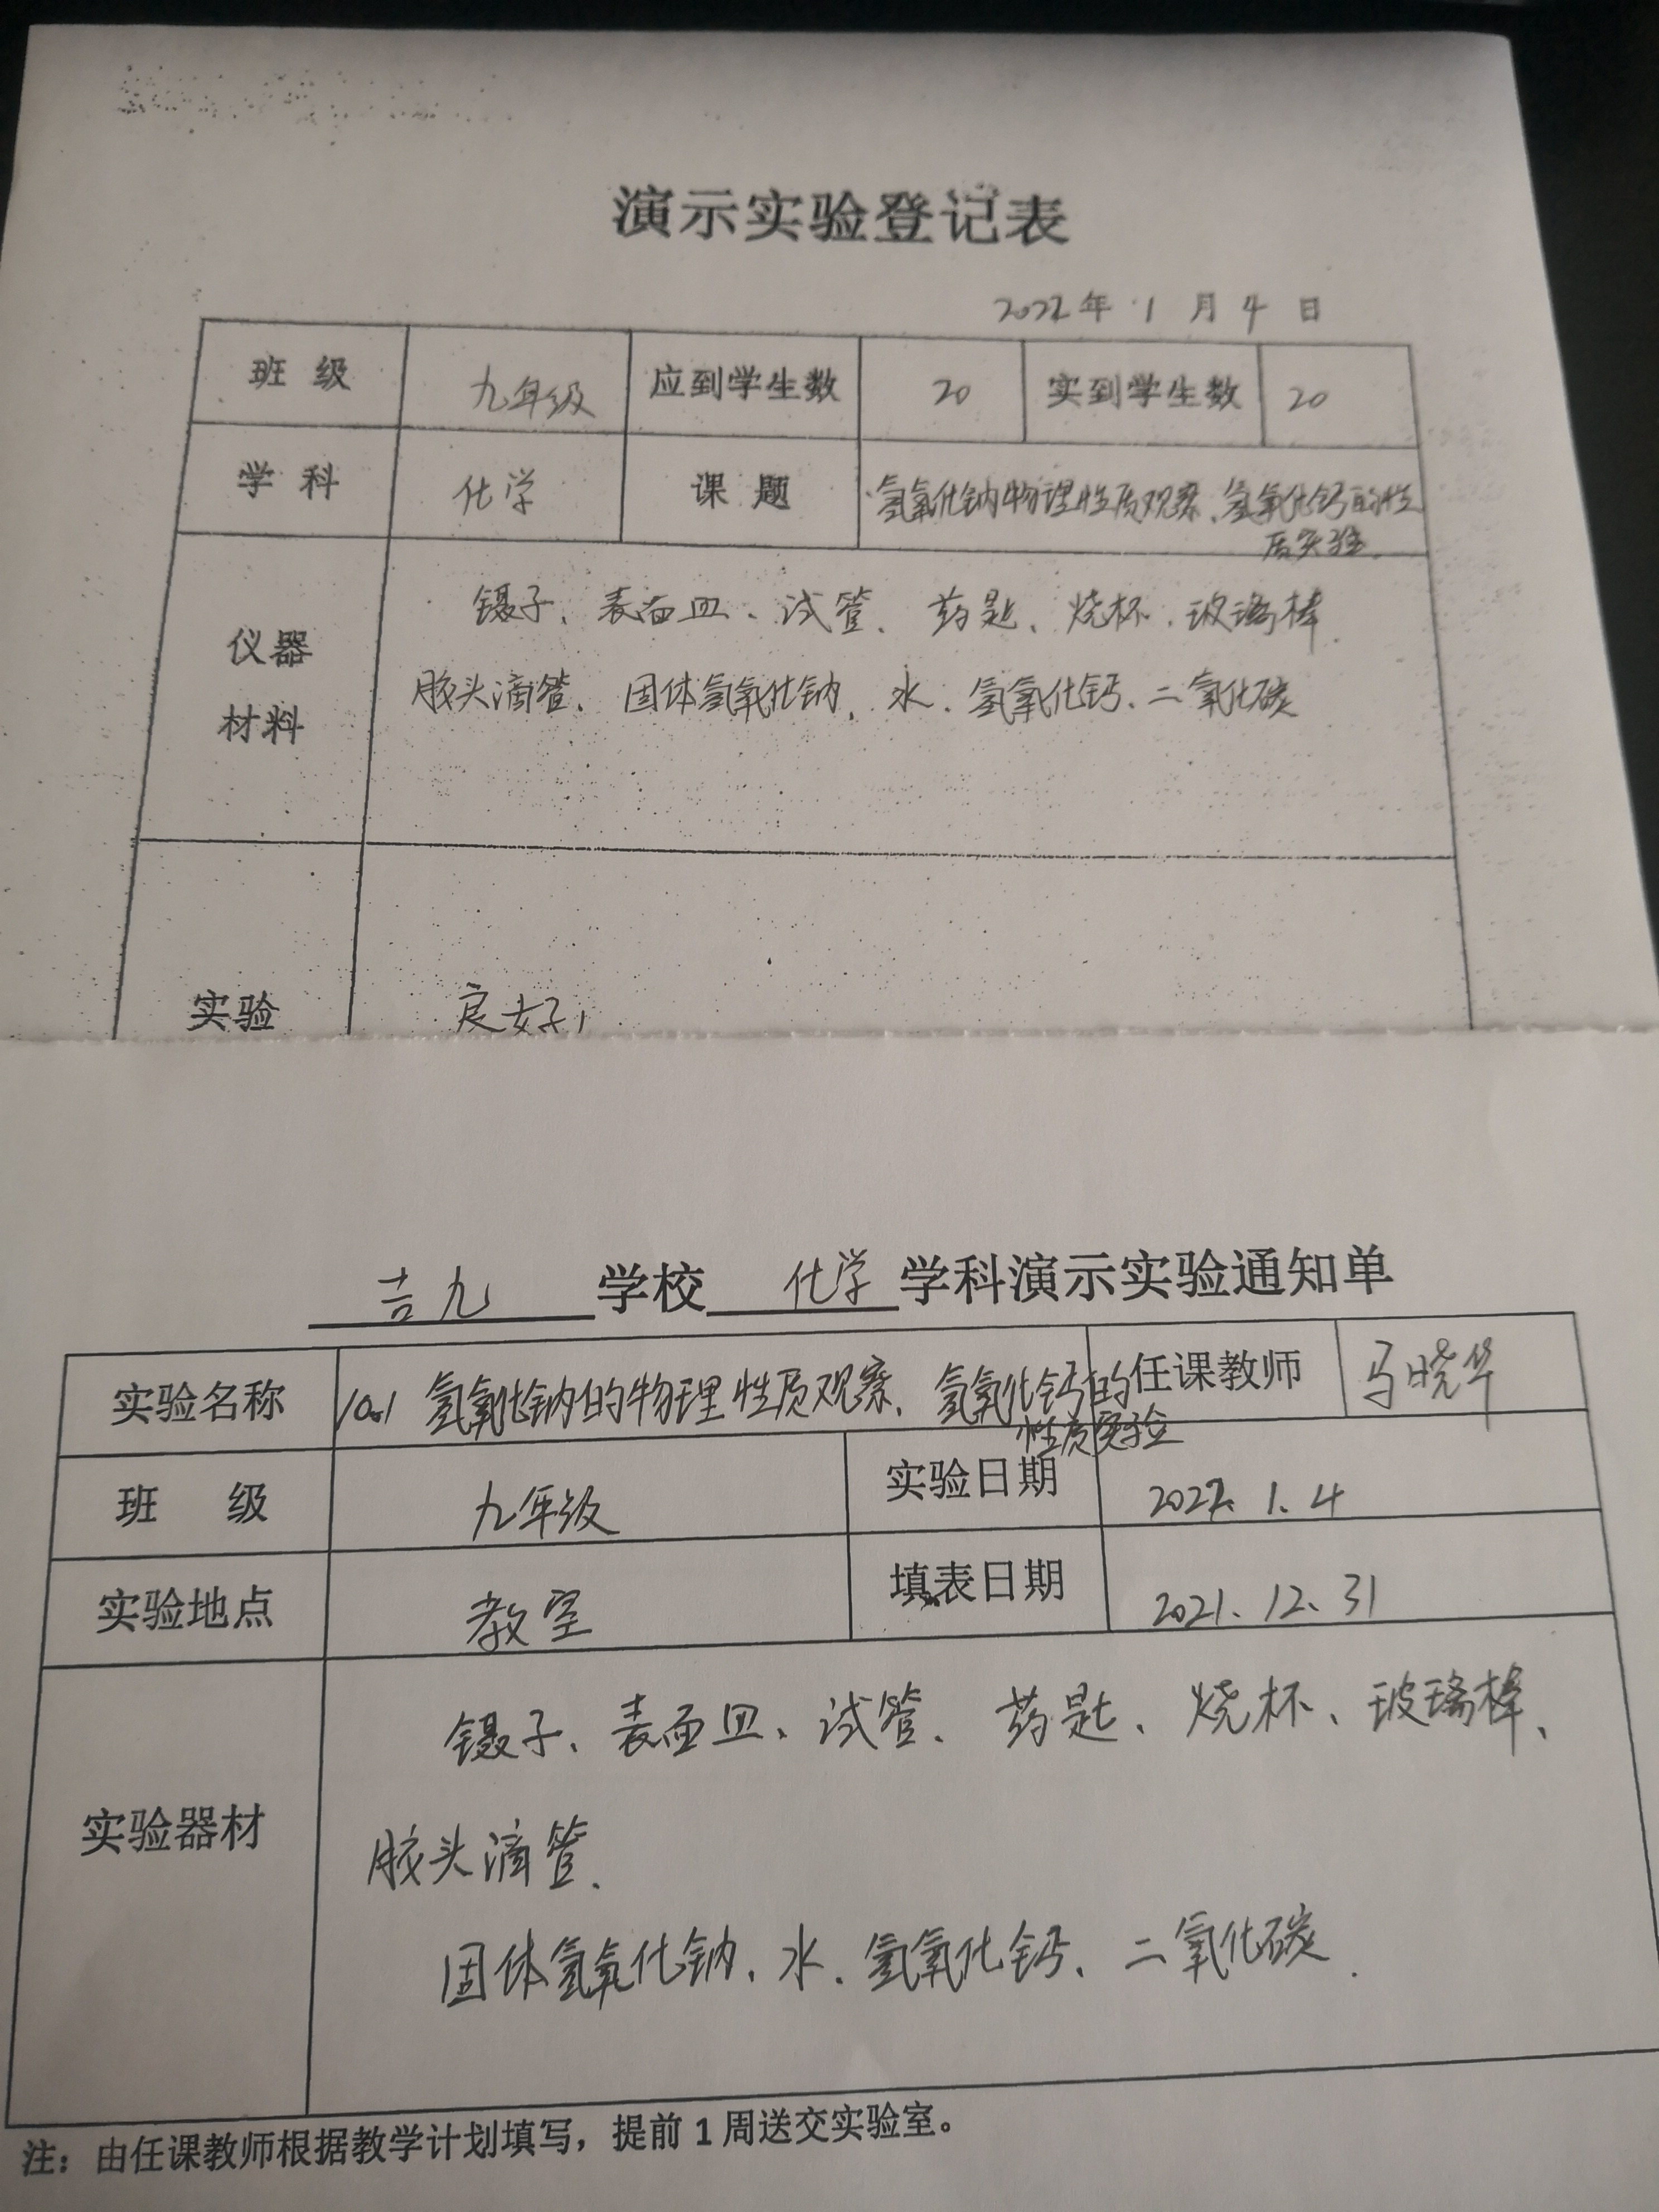 演示实验登记表
2022年 1 月 4 日
班 级 九年级 应到学生数 20 实到学生数 20
学 科 化学 课 题 氢氧化钠物理性质观察、氢氧化钙的性
质实验.
仪器 镊子、表面皿、试管、药匙、烧杯、玻璃棒.
材料 胶头滴管、固体氢氧化钠、水、氢氧化钙、二氧化碳
实验 良好,
吉九 学校 化学 学科演示实验通知单
实验名称 10.1 氢氧化钠的物理性质观察、氢氧化钙的 任课教师 马晓华
性质实验
班 级 九年级 实验日期 2022.1.4
实验地点 教室 填表日期 2021.12.31
镊子、表面皿、试管、药匙、烧杯、玻璃棒、
实验器材 胶头滴管、
固体氢氧化钠、水、氢氧化钙、二氧化碳.
注：由任课教师根据教学计划填写，提前 1 周送交实验室。